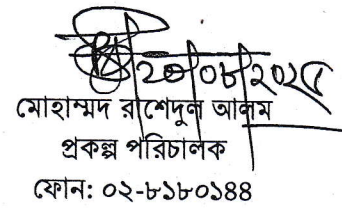 ২০/০৮/২০২৫
মোহাম্মদ রাশেদুল আলম
প্রকল্প পরিচালক
ফোন: ০২-৮১৮০১৪৪